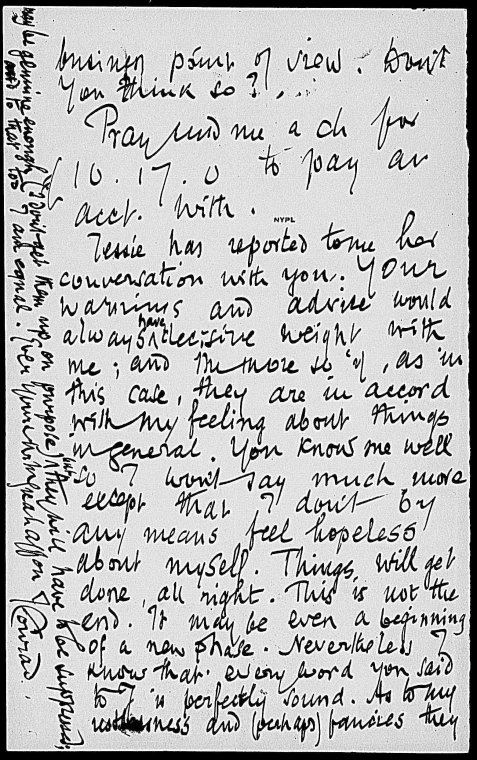 business point of view. Don't
you think so?...
Pray send me a ch for
£10.17.0 to pay an
acct. with.
NYPL
Jessie has reported to me her
conversation with you. Your
warnings and advise would
always have decisive weight with
me; and the more so if, as in
this case, they are in accord
with my feeling about things
in general. You know me well
so I won't say much more
except that I don't by
any means feel hopeless
about myself. Things will get
done, all right. This is not the
end. It may be even a beginning
of a new phase. Nevertheless I
know that every word you said
to J is perfectly sound. As to my
and (perhaps) fancies they
may be genuine enough (I don't get them up on purpose) but they will have to be suppressed;
and to that too I am equal. Ever yours Conrad.